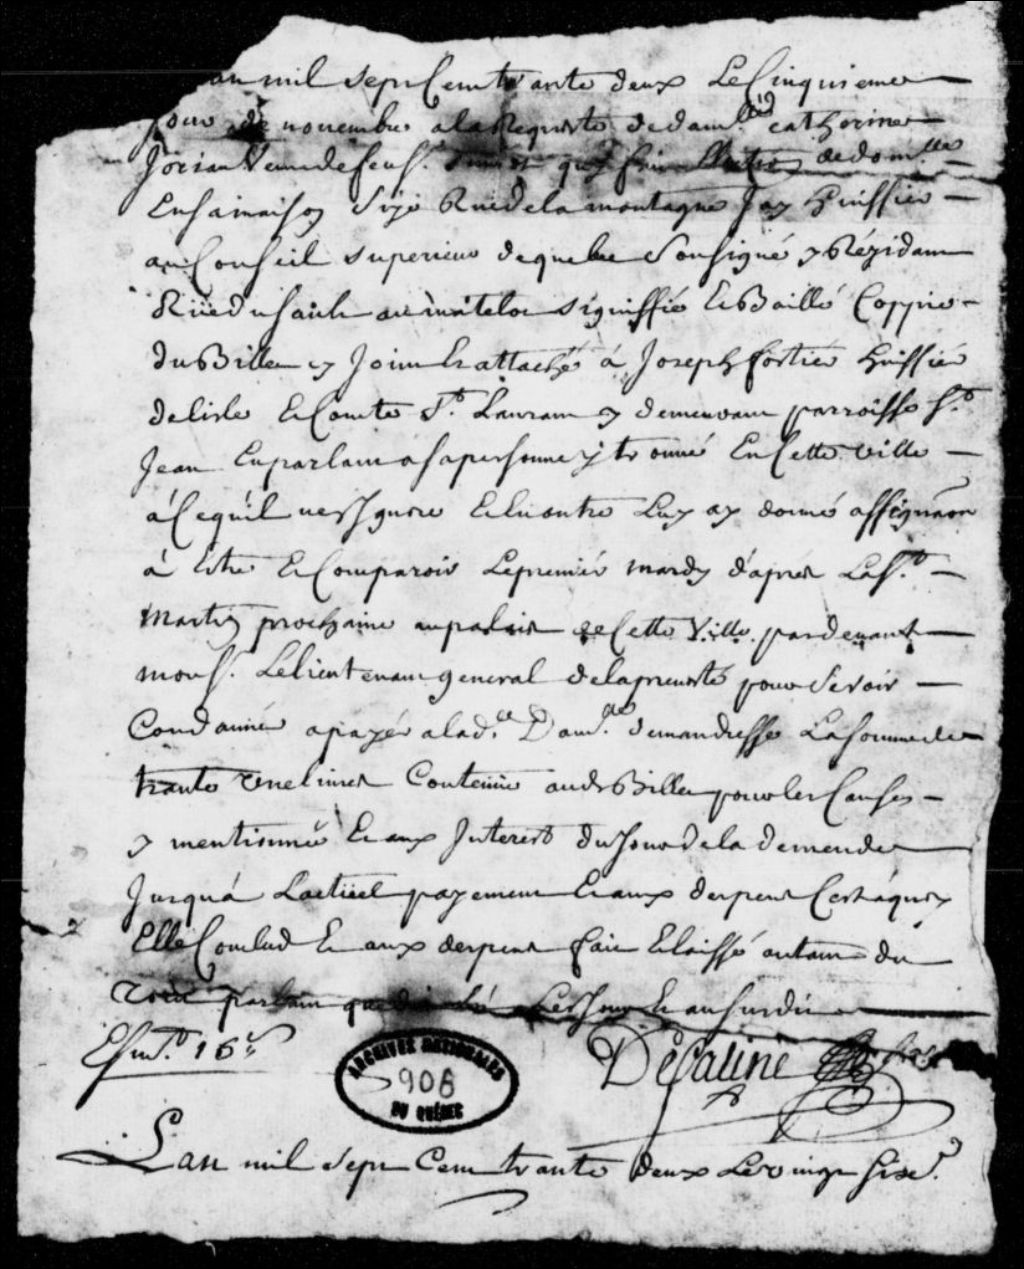 an mil sept Cent trante deux Le Cinquieme
jour de novembre a la Requeste de dam.lle catherine
Jorian Veuve de feu s.r qui fait Election de dom.lle
En sa maison size Rue de la montagne Jay huissier
au Conseil superieur de quebec Soussigné y Rézidam
Rüe du Sault au matelot signiffié Et Baillé Coppie
du Billet cy Joint Et attaché à Joseph fortié huissié
de lisle Et Comté St. Lauram y demeurant parroisse St.
Jean En parlant a sa personne trouvé En Cette Ville
à Ce quil nen Ignore Et luy ay donné assignaon
à Estre Et Comparoir Le premié mardy daprés La St.
Martin prochaine au palais de Cette Ville pardevant
mons.r Le lieutenant general de la prevosté pour se voir
Condamné a payér a lad.e Dam.lle demandresse La somme de
trante livres Contenüe aud. Billet pour les Causes
y mentionnée Et aux Interest du Jour de la demende
Jusquá Lactuel payement Et aux despens Cest á quoy
Elle Conclud Et aux despens fait Et laissé autant du
parlant que dit Les Jour Et an susdit
16s
Décaline
ARCHIVES NATIONALES
906
DU QUÉBEC
Lan mil sept Cent trante deux Le vingt sixe.